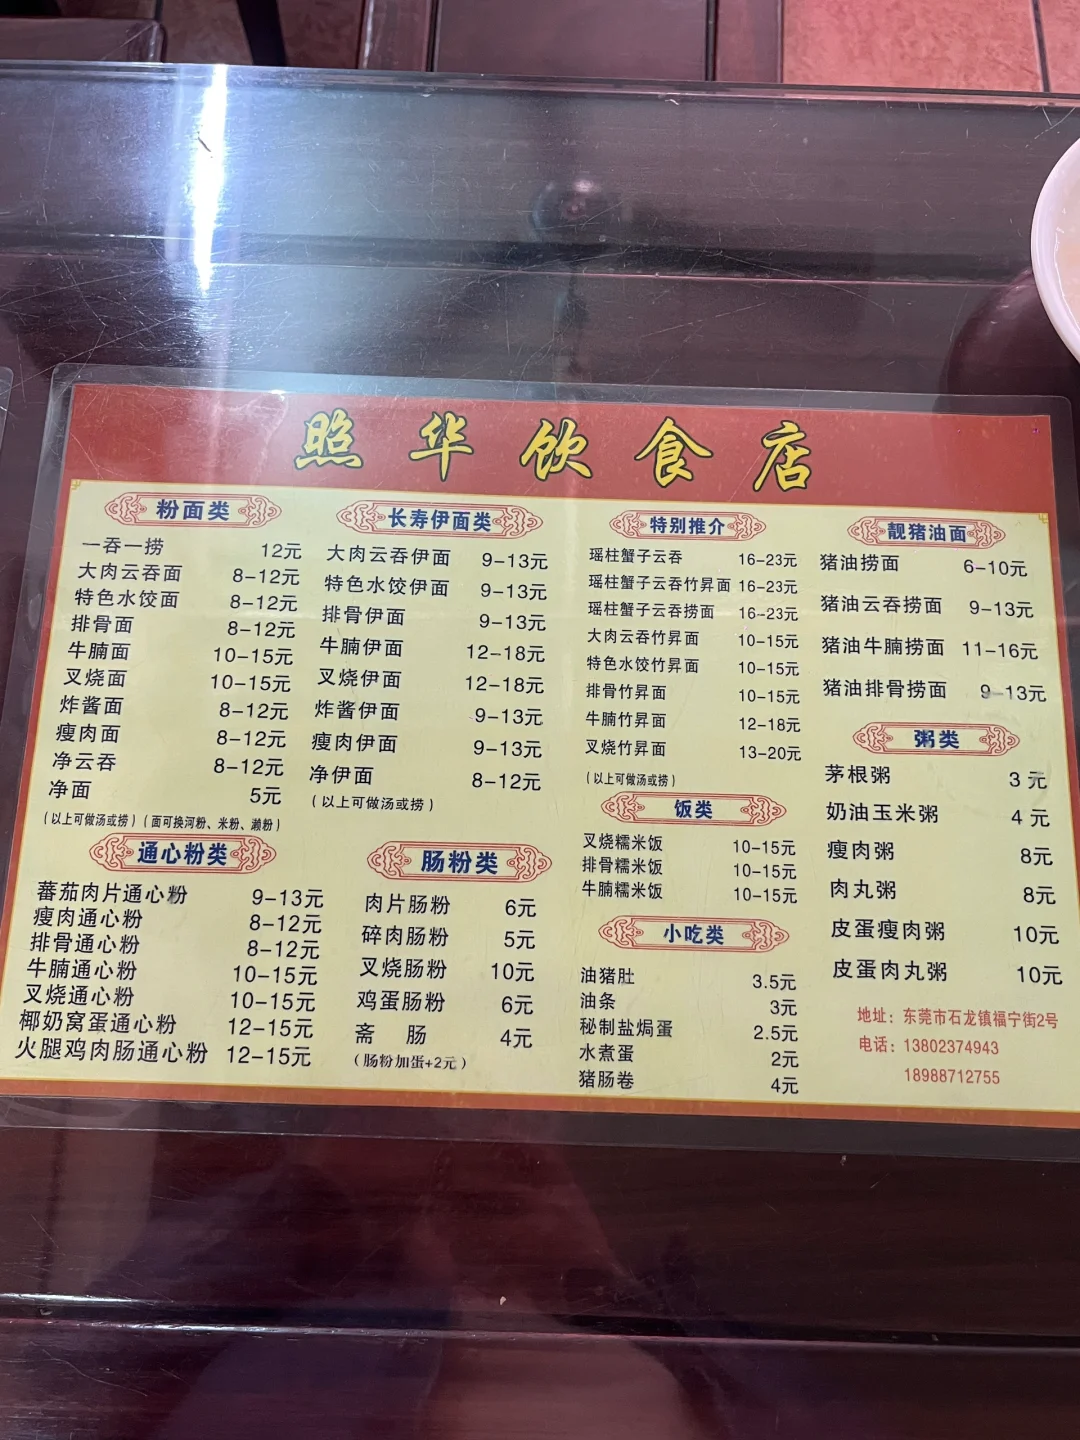 照华饮食店
粉面类
一吞一捞 12元
大肉云吞面 8-12元
特色水饺面 8-12元
排骨面 8-12元
牛腩面 10-15元
叉烧面 10-15元
炸酱面 8-12元
瘦肉面 8-12元
净云吞 8-12元
净面 5元
(以上可做汤或捞)(面可换河粉、米粉、濑粉)
通心粉类
蕃茄肉片通心粉 9-13元
瘦肉通心粉 8-12元
排骨通心粉 8-12元
牛腩通心粉 10-15元
叉烧通心粉 10-15元
椰奶窝蛋通心粉 12-15元
火腿鸡肉肠通心粉 12-15元
长寿伊面类
大肉云吞伊面 9-13元
特色水饺伊面 9-13元
排骨伊面 9-13元
牛腩伊面 12-18元
叉烧伊面 12-18元
炸酱伊面 9-13元
瘦肉伊面 9-13元
净伊面 8-12元
(以上可做汤或捞)
肠粉类
肉片肠粉 6元
碎肉肠粉 5元
叉烧肠粉 10元
鸡蛋肠粉 6元
斋 肠 4元
(肠粉加蛋+2元)
特别推介
瑶柱蟹子云吞 16-23元
瑶柱蟹子云吞竹昇面 16-23元
瑶柱蟹子云吞捞面 16-23元
大肉云吞竹昇面 10-15元
特色水饺竹昇面 10-15元
排骨竹昇面 10-15元
牛腩竹昇面 12-18元
叉烧竹昇面 13-20元
(以上可做汤或捞)
饭类
叉烧糯米饭 10-15元
排骨糯米饭 10-15元
牛腩糯米饭 10-15元
小吃类
油猪肚 3.5元
油条 3元
秘制盐焗蛋 2.5元
水煮蛋 2元
猪肠卷 4元
靓猪油面
猪油捞面 6-10元
猪油云吞捞面 9-13元
猪油牛腩捞面 11-16元
猪油排骨捞面 9-13元
粥类
茅根粥 3元
奶油玉米粥 4元
瘦肉粥 8元
肉丸粥 8元
皮蛋瘦肉粥 10元
皮蛋肉丸粥 10元
地址：东莞市石龙镇福宁街2号
电话：13802374943
18988712755